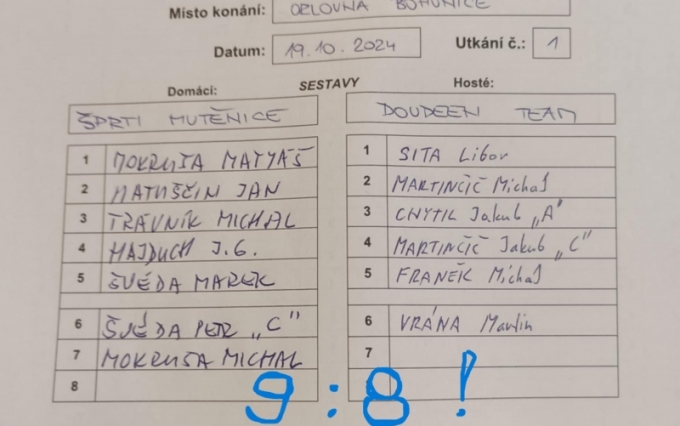 Místo konání: ORLOVNA BOHUNICE
Datum: 19.10.2024 Utkání č.: 1
SESTAVY
Domácí: Hosté:
ŠPRTI MUTĚNICE DOUDEEN TEAM
1 MOKRUŠA MATYÁŠ 1 SITA Libor
2 MATUŠČIN JAN 2 MARTINČIČ Michal
3 TRÁVNÍK MICHAL 3 CHYTIL Jakub „A"
4 HAJDUCH J.G. 4 MARTINČIČ Jakub „C"
5 ŠVÉDA MAREK 5 FRANĚK Michal
6 ŠVÉDA PETR „C" 6 VRÁNA Martin
7 MOKRUŠA MICHAL 7
8
9:8!